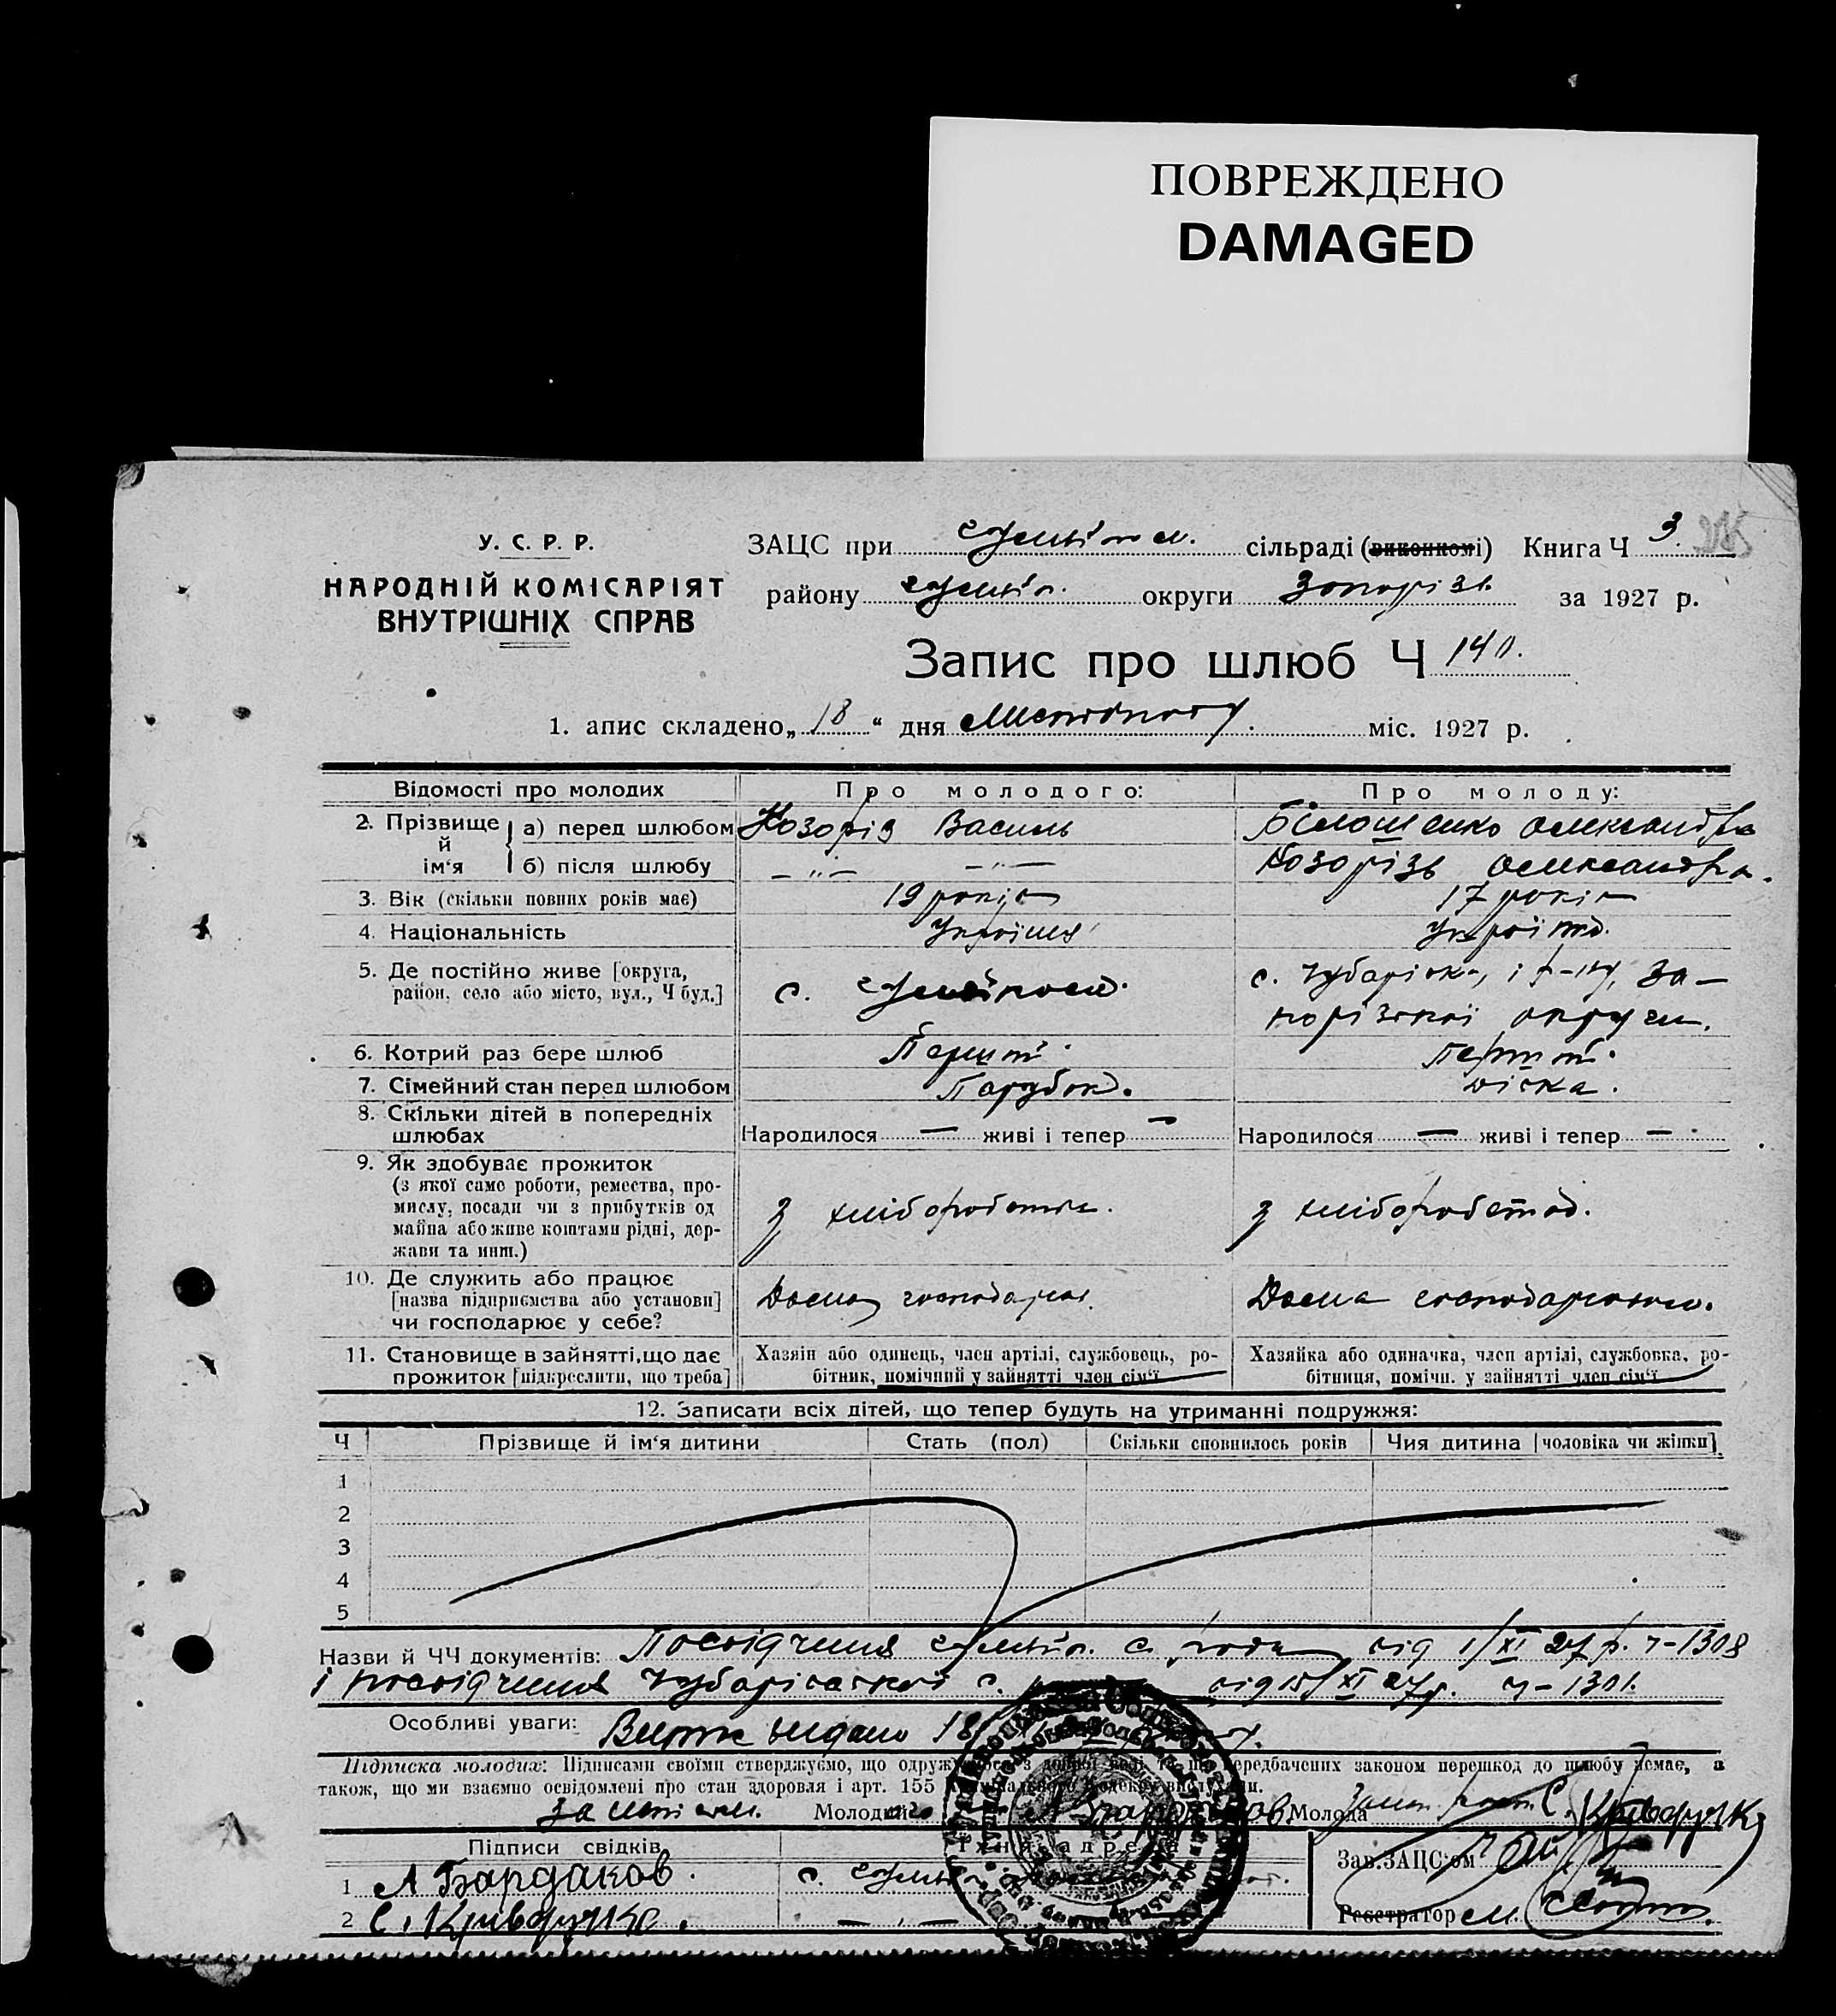 ПОВРЕЖДЕНО
DAMAGED
У. С. Р. Р.
НАРОДНІЙ КОМІСАРІЯТ
ВНУТРІШНІХ СПРАВ
ЗАЦС при сільраді (виконкомі) Книга Ч 3. 205
району округи Запоріз. за 1927 р.
Запис про шлюб Ч 140.
1. апис складено „18“ дня Листопаду. міс. 1927 р.
Відомості про молодих Про молодого: Про молоду:
2. Прізвище й ім‘я а) перед шлюбом Козоріз Василь Білошенко Олександра
б) після шлюбу -"- -"- Козорізь Олександра.
3. Вік (скільки повних років має) 19 років 17 років
4. Національність Україн. Україн.
5. Де постійно живе [округа, район, село або місто, вул., Ч буд.] с. с. Чубарівка, і р-ну, За-
порізької округи.
6. Котрий раз бере шлюб Перший. Перший.
7. Сімейний стан перед шлюбом Парубок. дівка.
8. Скільки дітей в попередніх шлюбах Народилося — живі і тепер — Народилося — живі і тепер —
9. Як здобуває прожиток
(з якої само роботи, ремества, про-
мислу, посади чи з прибутків од
майна або живе коштами рідні, дер-
жави та инш.) з хліборобства. з хліборобства.
10. Де служить або працює
[назва підприємства або установи]
чи господарює у себе? Дома господарює. Дома
11. Становище в зайнятті, що дає
прожиток [підкреслити, що треба]
Хазяін або одинець, член артілі, службовець, ро-
бітник, помічний у зайнятті член сім‘ї
Хазяйка або одиначка, член артілі, службовка, ро-
бітниця, помічн. у зайнятті член сім‘ї
12. Записати всіх дітей, що тепер будуть на утриманні подружжя:
Ч Прізвище й ім‘я дитини Стать (пол) Скільки сповнилось років Чия дитина [чоловіка чи жінки]
1
2
3
4
5
Назви й ЧЧ документів: Посвідчення с. ради від 1/XI 27 р. ч-1308
і посвідчення Чубарівської с. від 15/XI 27 р. ч-1301.
Особливі уваги: Витяг видано 18
Підписка молодих: Підписами своїми стверджуємо, що одружуємося з доброї волі та що передбачених законом перешкод до шлюбу немає, а
також, що ми взаємно освідомлені про стан здоровля і арт. 155 Кримінального Кодексу вислухали.
Молодий Молода С. Криворучко
Підписи свідків Їхня адреса
1 А Бардаков. с.
2 С. Криворучко. — " —
Зав. ЗАЦС‘ом
Реєстратор М.